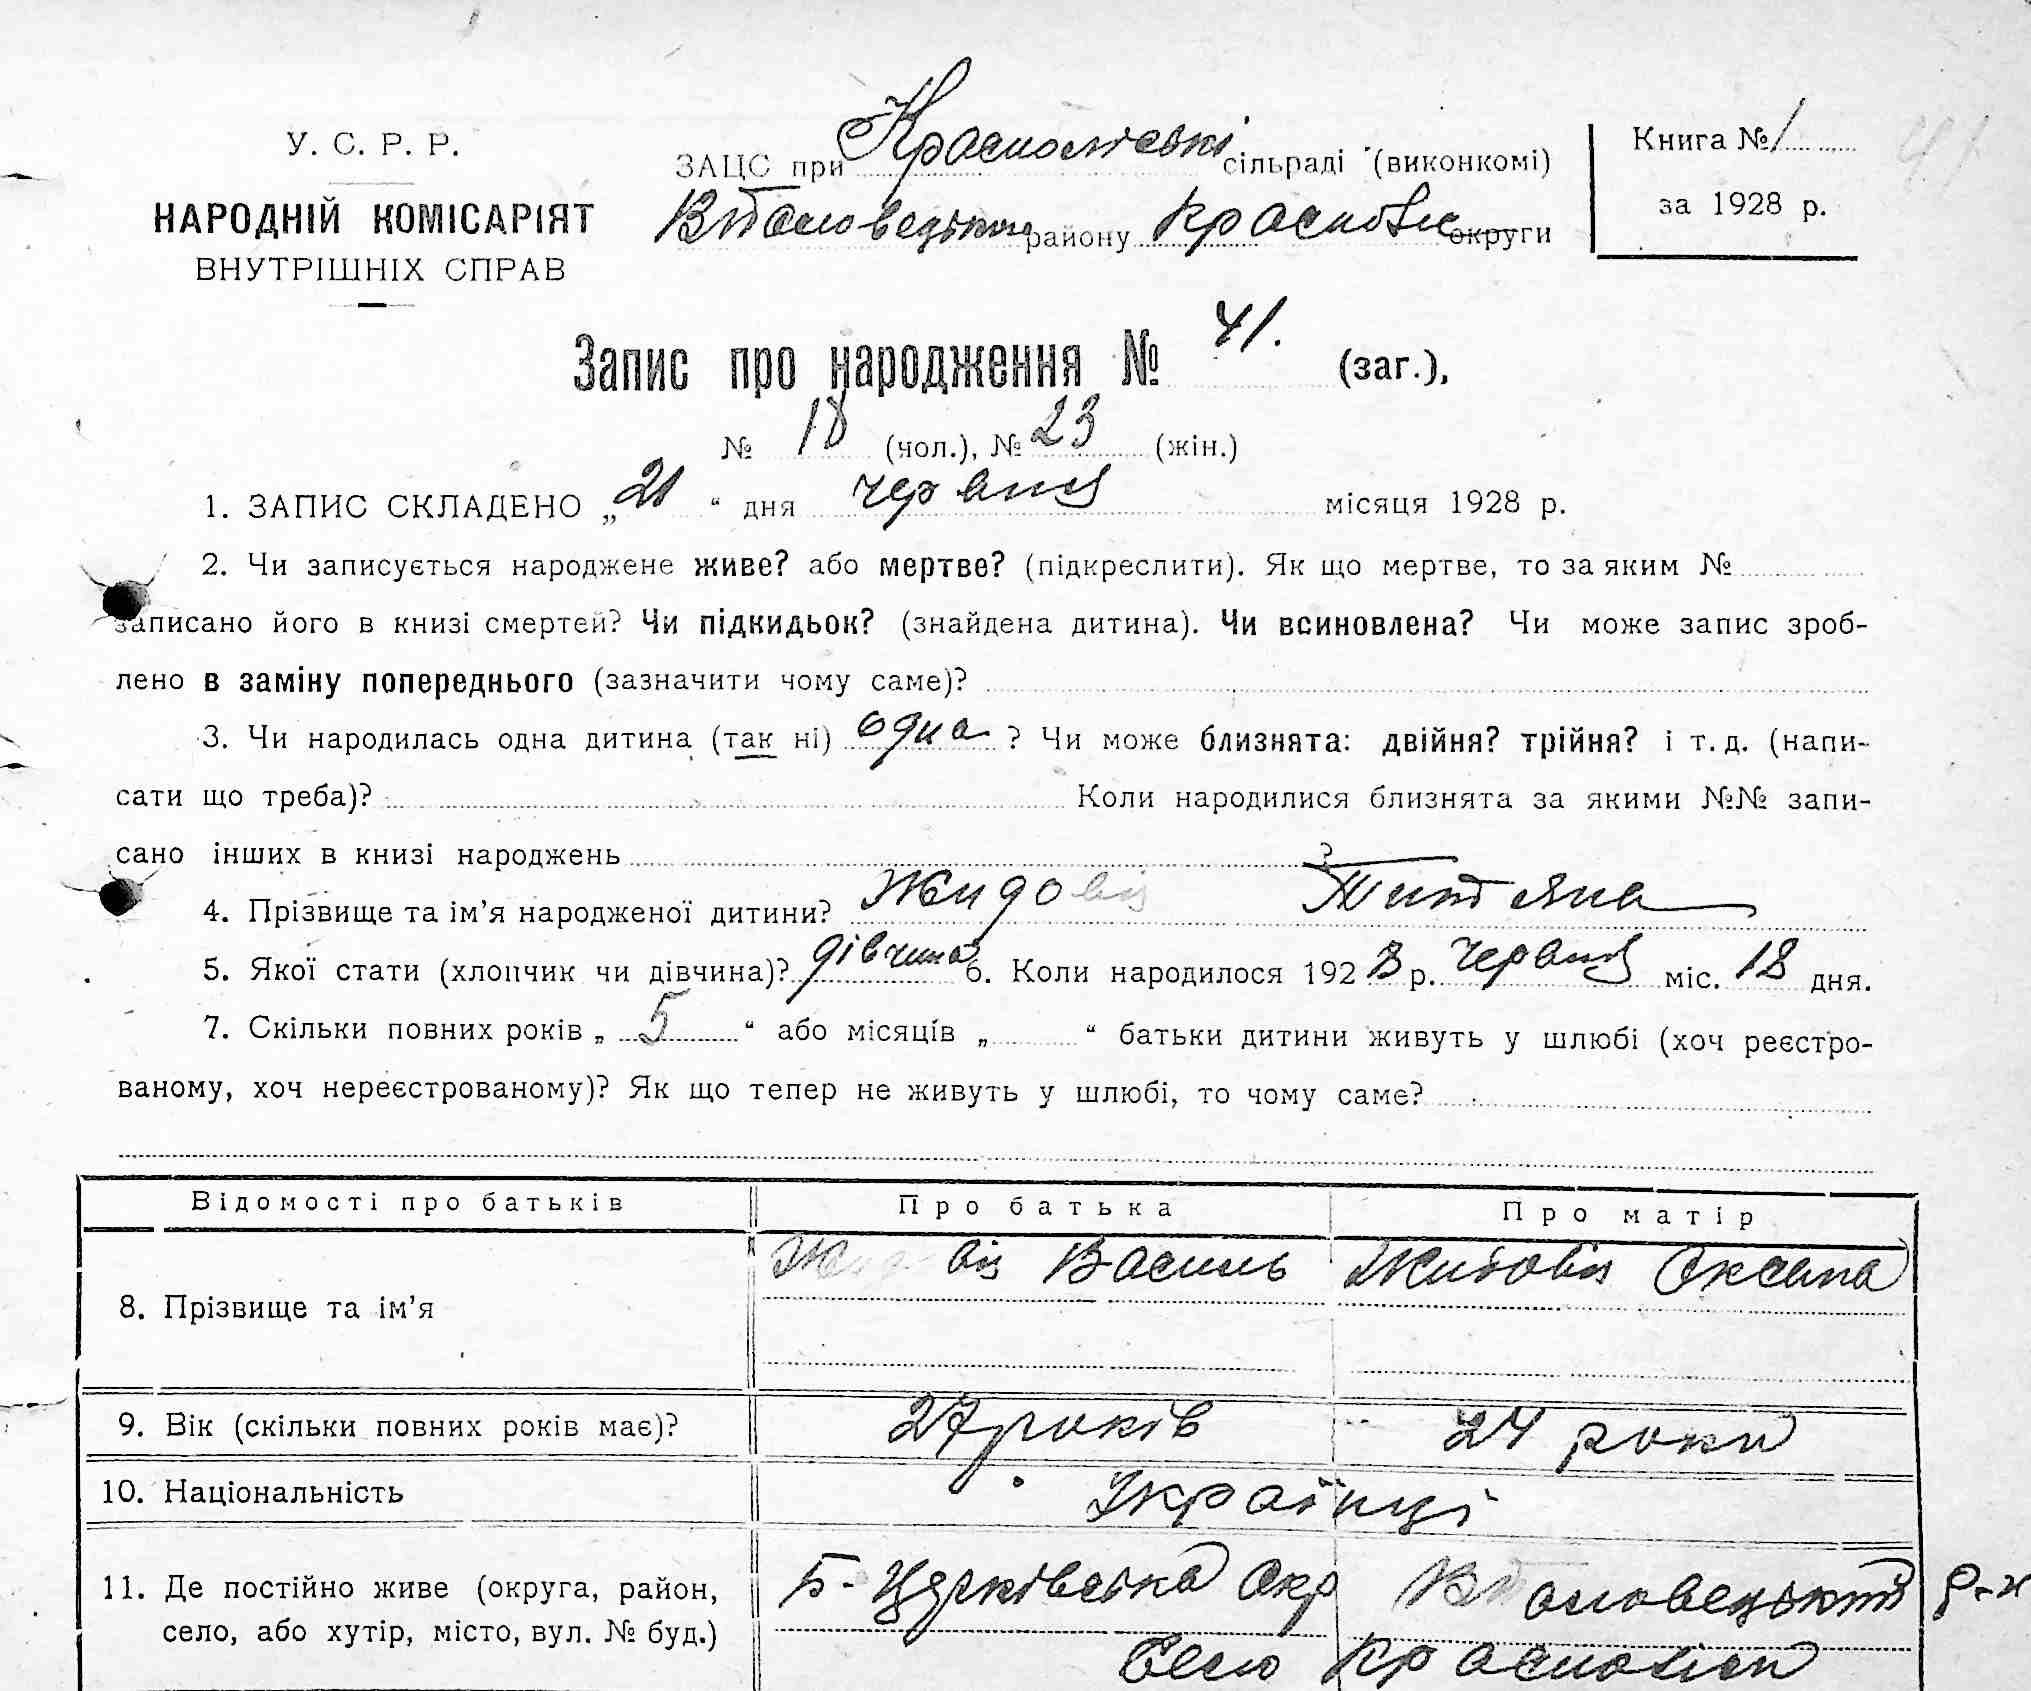 У. С. Р. Р.
НАРОДНІЙ КОМІСАРІЯТ
ВНУТРІШНІХ СПРАВ
ЗАЦС при сільраді (виконкомі)
району округи
Книга № 1
за 1928 р.
41
Запис про народження № 41. (заг.),
№ 18 (чол.), № 23 (жін.)
1. ЗАПИС СКЛАДЕНО „21“ дня червня місяця 1928 р.
2. Чи записується народжене живе? або мертве? (підкреслити). Як що мертве, то за яким №
записано його в книзі смертей? Чи підкидьок? (знайдена дитина). Чи всиновлена? Чи може запис зроб-
лено в заміну попереднього (зазначити чому саме)?
3. Чи народилась одна дитина (так ні) одна ? Чи може близнята: двійня? трійня? і т. д. (напи-
сати що треба)? Коли народилися близнята за якими №№ запи-
сано інших в книзі народжень ?
4. Прізвище та ім’я народженої дитини? Жидовец Титяна
5. Якої стати (хлопчик чи дівчина)? дівчина 6. Коли народилося 1928 р. червня міс. 18 дня.
7. Скільки повних років „ 5 “ або місяців „ “ батьки дитини живуть у шлюбі (хоч реєстро-
ваному, хоч нереєстрованому)? Як що тепер не живуть у шлюбі, то чому саме?
Відомості про батьків Про батька Про матір
8. Прізвище та ім’я Василь Оксана
9. Вік (скільки повних років має)? 27 років 24 роки
10. Національність Українці
11. Де постійно живе (округа, район, Б-Церківська Окр р-н
село, або хутір, місто, вул. № буд.) Село